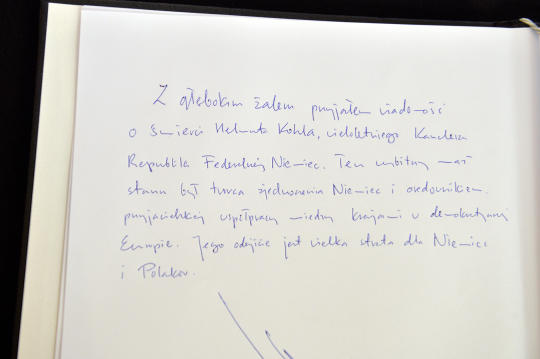 Z głębokim żalem przyjąłem wiadomość
o śmierci Helmuta Kohla, wieloletniego Kanclerza
Republiki Federalnej Niemiec. Ten wybitny mąż
stanu był twórcą zjednoczenia Niemiec i orędownikiem
przyjacielskiej współpracy między krajami w demokratycznej
Europie. Jego odejście jest wielką stratą dla Niemiec
i Polaków.